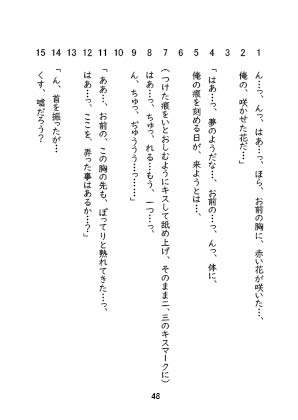 1 ん…っ、んっ、はあ…っ、ほら、お前の胸に、赤い花が咲いた…、
2 俺の、咲かせた花だ…」
3
4 「はあ…っ、夢のようだな…、お前の…っ、んっ、体に、
5 俺の痕を刻める日が、来ようとは…、
6
7 (つけた痕をいとおしむようにキスして舐め上げ、そのまま二、三のキスマークに)
8 はあ…っ、ちゅっ、れる…もう、一つ…っ、
9 ん、ちゅっ、ぢゅううう…っ……」
10
11 「ああ…、お前の、この胸の先も、ぽってりと熟れてきた…っ、
12 はあ…っ、ここを、弄った事はあるか…？」
13
14 「ん、首を振ったが…
15 くす、嘘だろう？
48